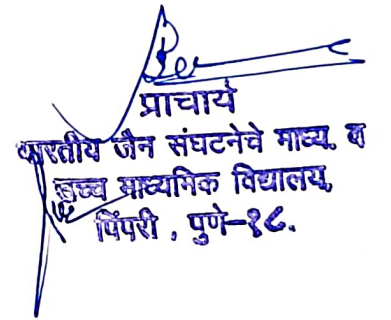 प्राचार्य
भारतीय जैन संघटनेचे माध्य. व
उच्च माध्यमिक विद्यालय,
पिंपरी , पुणे-१८.